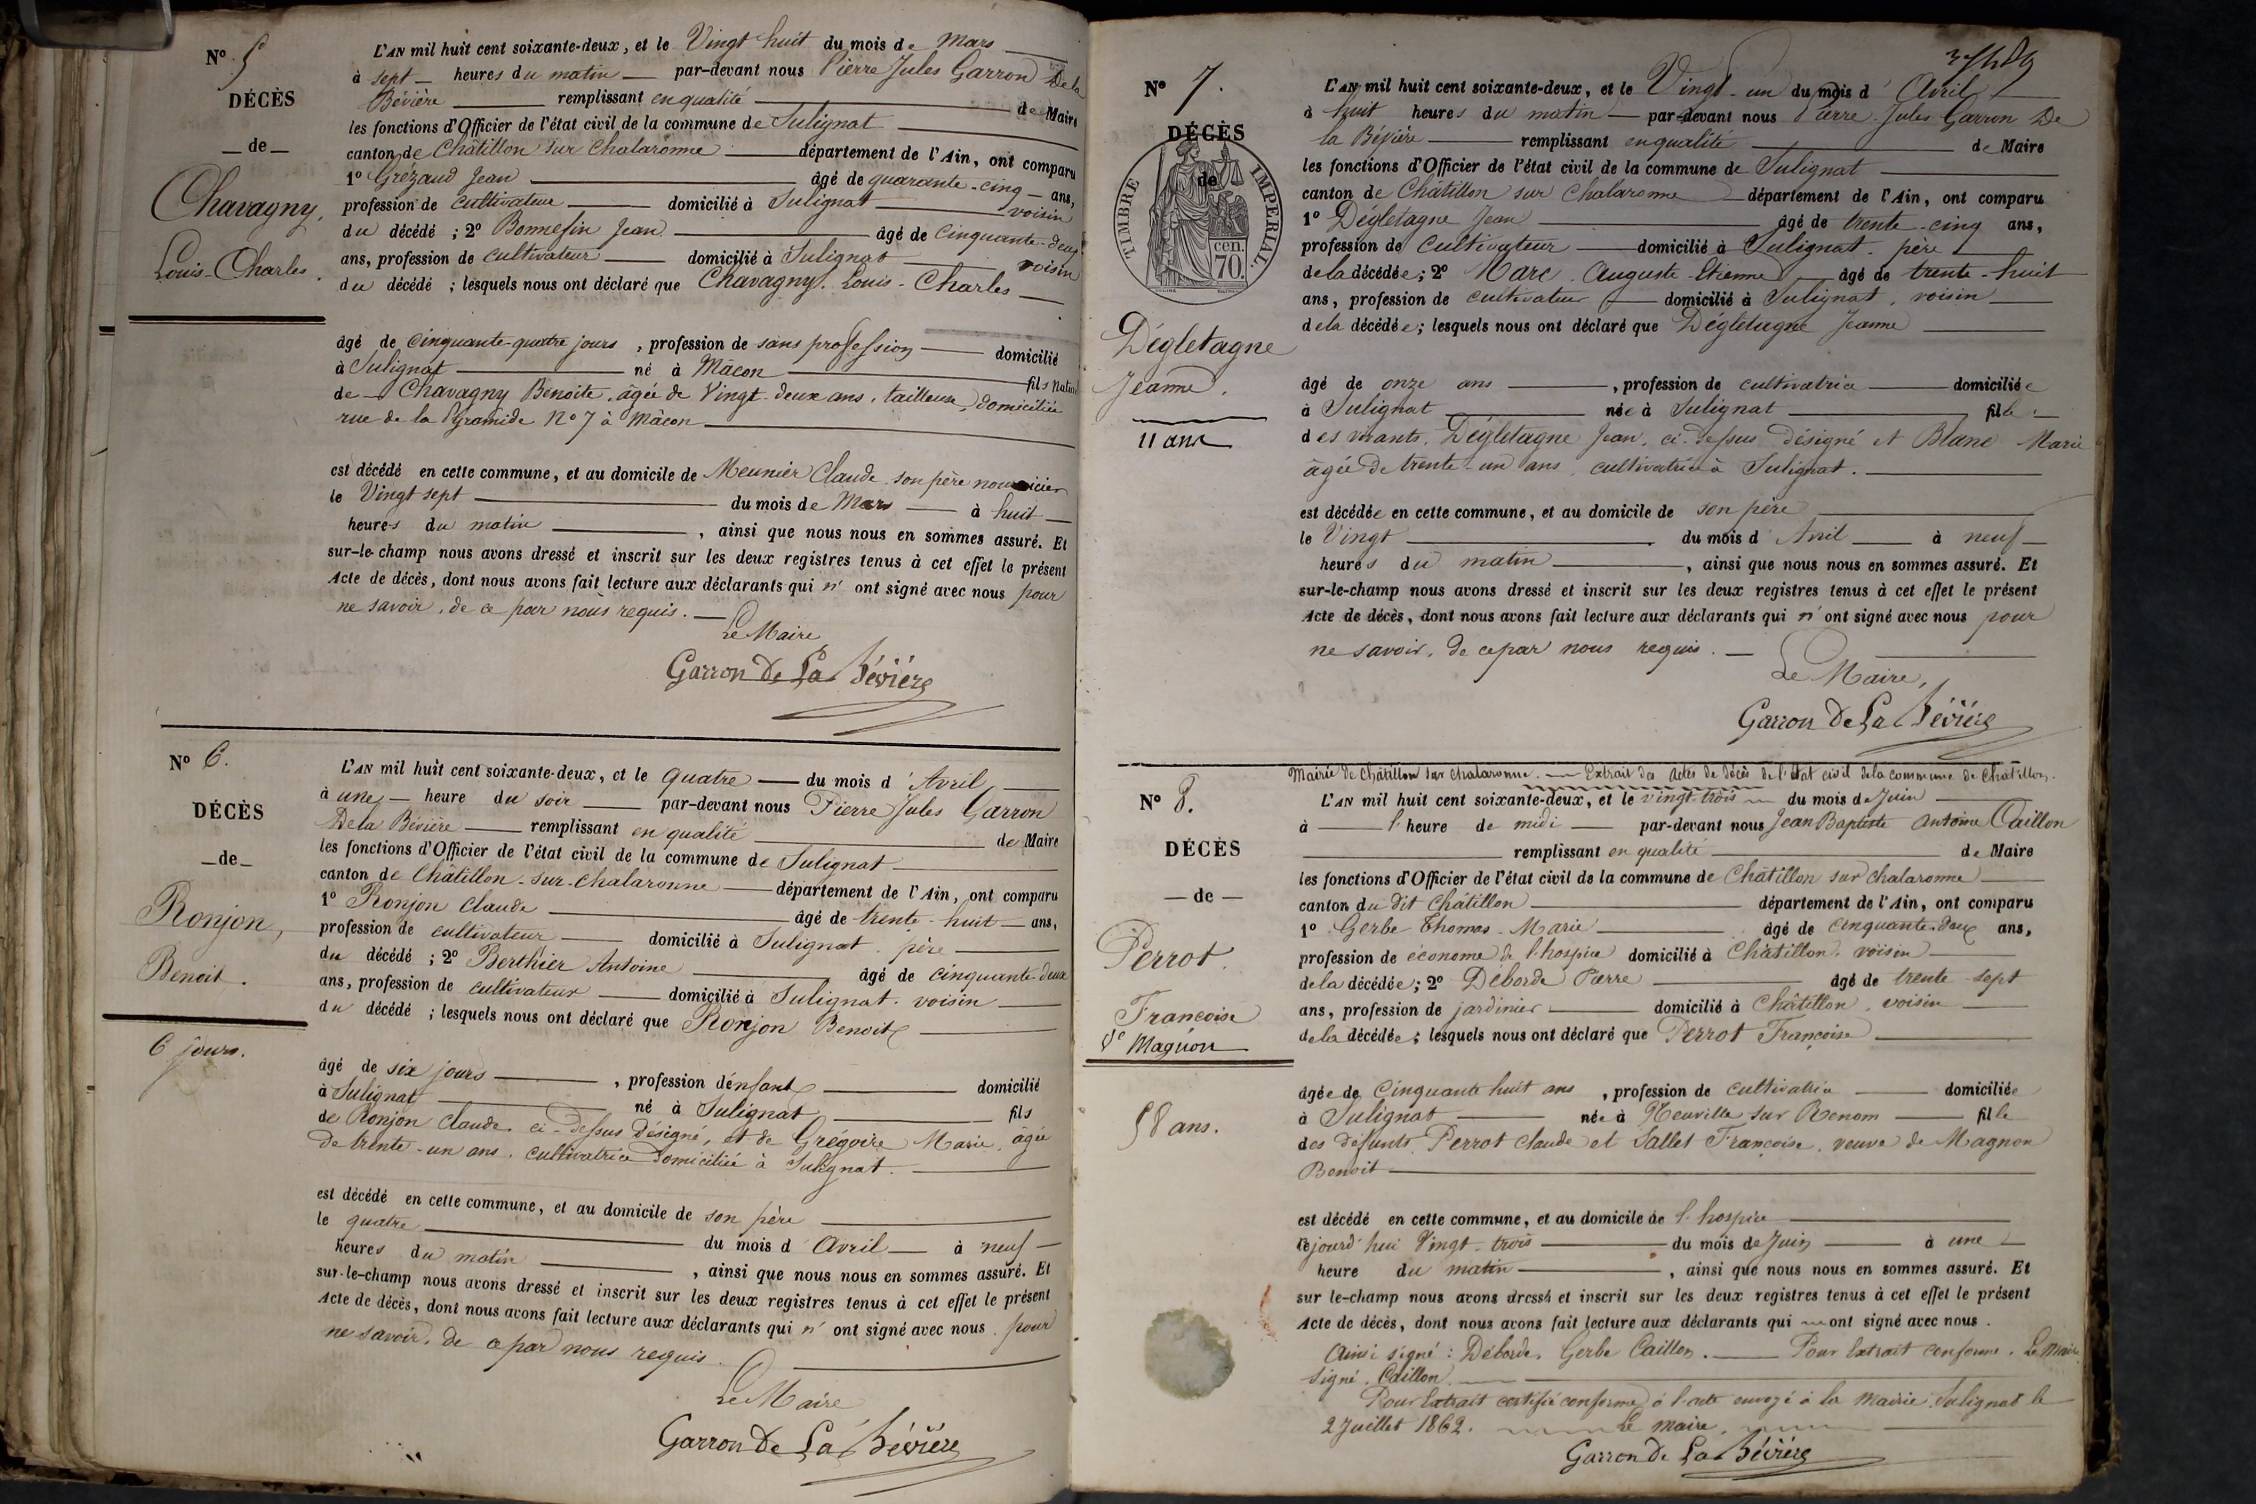 N° 5
DÉCÈS
— de —
Chavagny,
Louis-Charles.
L'AN mil huit cent soixante-deux, et le Vingt huit du mois de Mars
à sept heures du matin par-devant nous Pierre Jules Garron De la
Bévière remplissant en qualité de Maire
les fonctions d'Officier de l'état civil de la commune de Sulignat
canton de Châtillon sur Chalaronne département de l'Ain, ont comparu
1° Grézaud Jean âgé de quarante-cinq ans,
profession de cultivateur domicilié à Sulignat voisin
du décédé ; 2° Bonnefin Jean âgé de cinquante-deux
ans, profession de cultivateur domicilié à Sulignat voisin
du décédé ; lesquels nous ont déclaré que Chavagny Louis-Charles
âgé de cinquante-quatre jours , profession de sans profession domicilié
à Sulignat né à Mâcon fils naturel
de Chavagny Benoite, âgée de Vingt-deux ans, tailleuse, domiciliée
rue de la Pyramide N° 7 à Mâcon
est décédé en cette commune, et au domicile de Meunier Claude son père nourricier
le Vingt sept du mois de Mars à huit
heures du matin , ainsi que nous nous en sommes assuré. Et
sur-le-champ nous avons dressé et inscrit sur les deux registres tenus à cet effet le présent
Acte de décès, dont nous avons fait lecture aux déclarants qui n' ont signé avec nous pour
ne savoir, de ce par nous requis.
Le Maire
Garron De La Bévière
N° 6.
DÉCÈS
— de —
Ronjon,
Benoit.
6 jours.
L'AN mil huit cent soixante-deux, et le quatre du mois d'Avril
à une heure du soir par-devant nous Pierre Jules Garron
De la Bévière remplissant en qualité de Maire
les fonctions d'Officier de l'état civil de la commune de Sulignat
canton de Châtillon-sur-Chalaronne département de l'Ain, ont comparu
1° Ronjon Claude âgé de trente-huit ans,
profession de cultivateur domicilié à Sulignat père
du décédé ; 2° Berthier Antoine âgé de cinquante-deux
ans, profession de cultivateur domicilié à Sulignat. voisin
du décédé ; lesquels nous ont déclaré que Ronjon Benoit
âgé de six jours , profession d'enfant domicilié
à Sulignat né à Sulignat fils
de Ronjon Claude, ci-dessus désigné, et de Grégoire Marie, âgée
de trente-un ans, cultivatrice domiciliée à Sulignat.
est décédé en cette commune, et au domicile de son père
le quatre du mois d'Avril à neuf
heures du matin , ainsi que nous nous en sommes assuré. Et
sur-le-champ nous avons dressé et inscrit sur les deux registres tenus à cet effet le présent
Acte de décès, dont nous avons fait lecture aux déclarants qui n' ont signé avec nous pour
ne savoir, de ce par nous requis.
Le Maire
Garron De La Bévière
N° 7.
DÉCÈS
de
TIMBRE IMPÉRIAL
cen.
70.
Dégletagne
Jeanne.
11 ans
L'AN mil huit cent soixante-deux, et le Vingt-un du mois d'Avril
à huit heures du matin par-devant nous Pierre Jules Garron De
la Bévière remplissant en qualité de Maire
les fonctions d'Officier de l'état civil de la commune de Sulignat
canton de Châtillon sur Chalaronne département de l'Ain, ont comparu
1° Dégletagne Jean âgé de trente-cinq ans,
profession de cultivateur domicilié à Sulignat. père
de la décédée ; 2° Marc Auguste Etienne âgé de trente-huit
ans, profession de cultivateur domicilié à Sulignat, voisin
de la décédée ; lesquels nous ont déclaré que Dégletagne Jeanne
âgé de onze ans , profession de cultivatrice domiciliée
à Sulignat née à Sulignat fille
des vivants, Dégletagne Jean, ci-dessus désigné et Blanc Marie
âgée de trente-un ans, cultivatrice à Sulignat.
est décédée en cette commune, et au domicile de son père
le Vingt du mois d'Avril à neuf
heures du matin , ainsi que nous nous en sommes assuré. Et
sur-le-champ nous avons dressé et inscrit sur les deux registres tenus à cet effet le présent
Acte de décès, dont nous avons fait lecture aux déclarants qui n' ont signé avec nous pour
ne savoir, de ce par nous requis.
Le Maire,
Garron De La Bévière
N° 8.
DÉCÈS
— de —
Perrot
Françoise
Ve Magnon
58 ans.
Mairie de Châtillon sur Chalaronne. — Extrait des actes de décès de l'état civil de la commune de Châtillon.
L'AN mil huit cent soixante-deux, et le vingt-trois du mois de Juin
à l' heure de midi par-devant nous Jean Baptiste Antoine Caillon
remplissant en qualité de Maire
les fonctions d'Officier de l'état civil de la commune de Châtillon sur Chalaronne
canton du dit Châtillon département de l'Ain, ont comparu
1° Gerbe Thomas-Marie âgé de cinquante-deux ans,
profession de économe de l'hospice domicilié à Châtillon, voisin
de la décédée ; 2° Déborde Pierre âgé de trente sept
ans, profession de jardinier domicilié à Châtillon, voisin
de la décédée ; lesquels nous ont déclaré que Perrot Françoise
âgée de Cinquante huit ans , profession de cultivatrice domiciliée
à Sulignat née à Neuville sur Renom fille
des défunts Perrot Claude et Sallet Françoise, veuve de Magnon
Benoit
est décédé en cette commune, et au domicile de l'hospice
cejourd'hui Vingt-trois du mois de Juin à une
heure du matin , ainsi que nous nous en sommes assuré. Et
sur le-champ nous avons dressé et inscrit sur les deux registres tenus à cet effet le présent
Acte de décès, dont nous avons fait lecture aux déclarants qui ont signé avec nous.
Ainsi signé : Déborde, Gerbe Caillon. — Pour Extrait conforme. Le Maire
signé, Caillon
Pour Extrait certifié conforme à l'acte envoyé à la Mairie Sulignat le
2 Juillet 1862. Le maire,
Garron De La Bévière